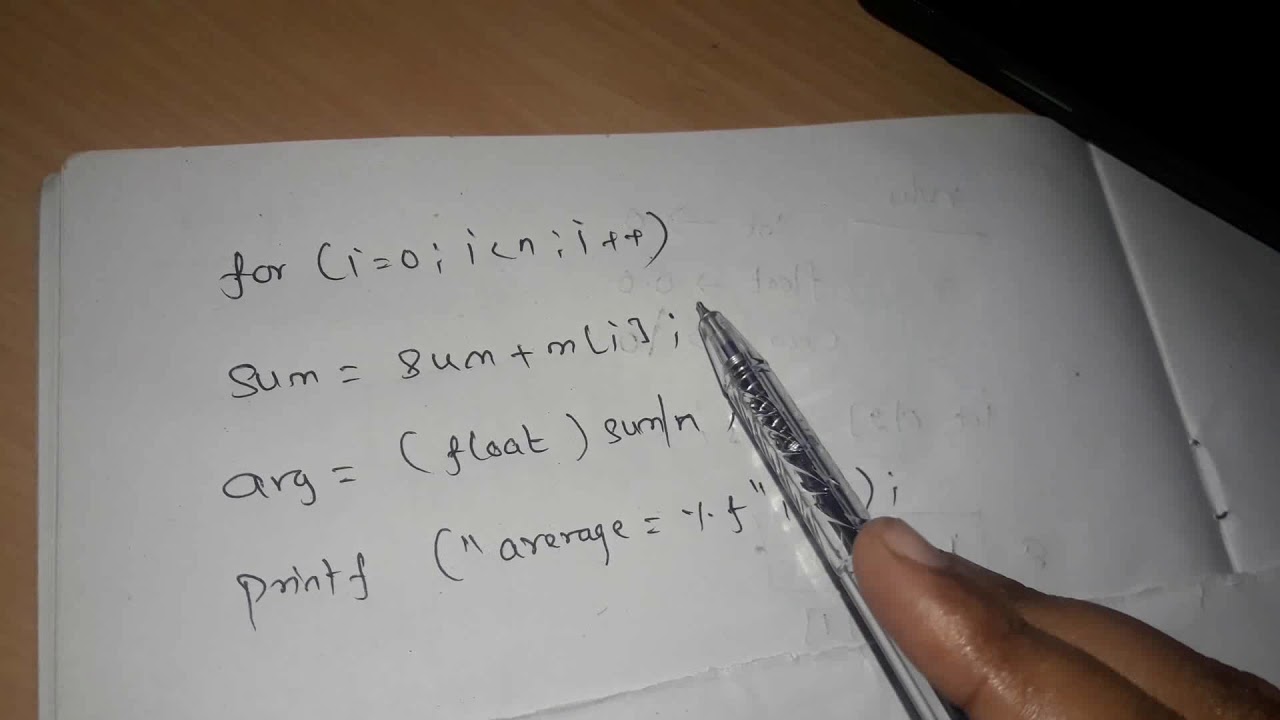 for (i=0; i<n; i++)
sum = sum + n[i];
avg = (float) sum/n
printf ("average = %f", );